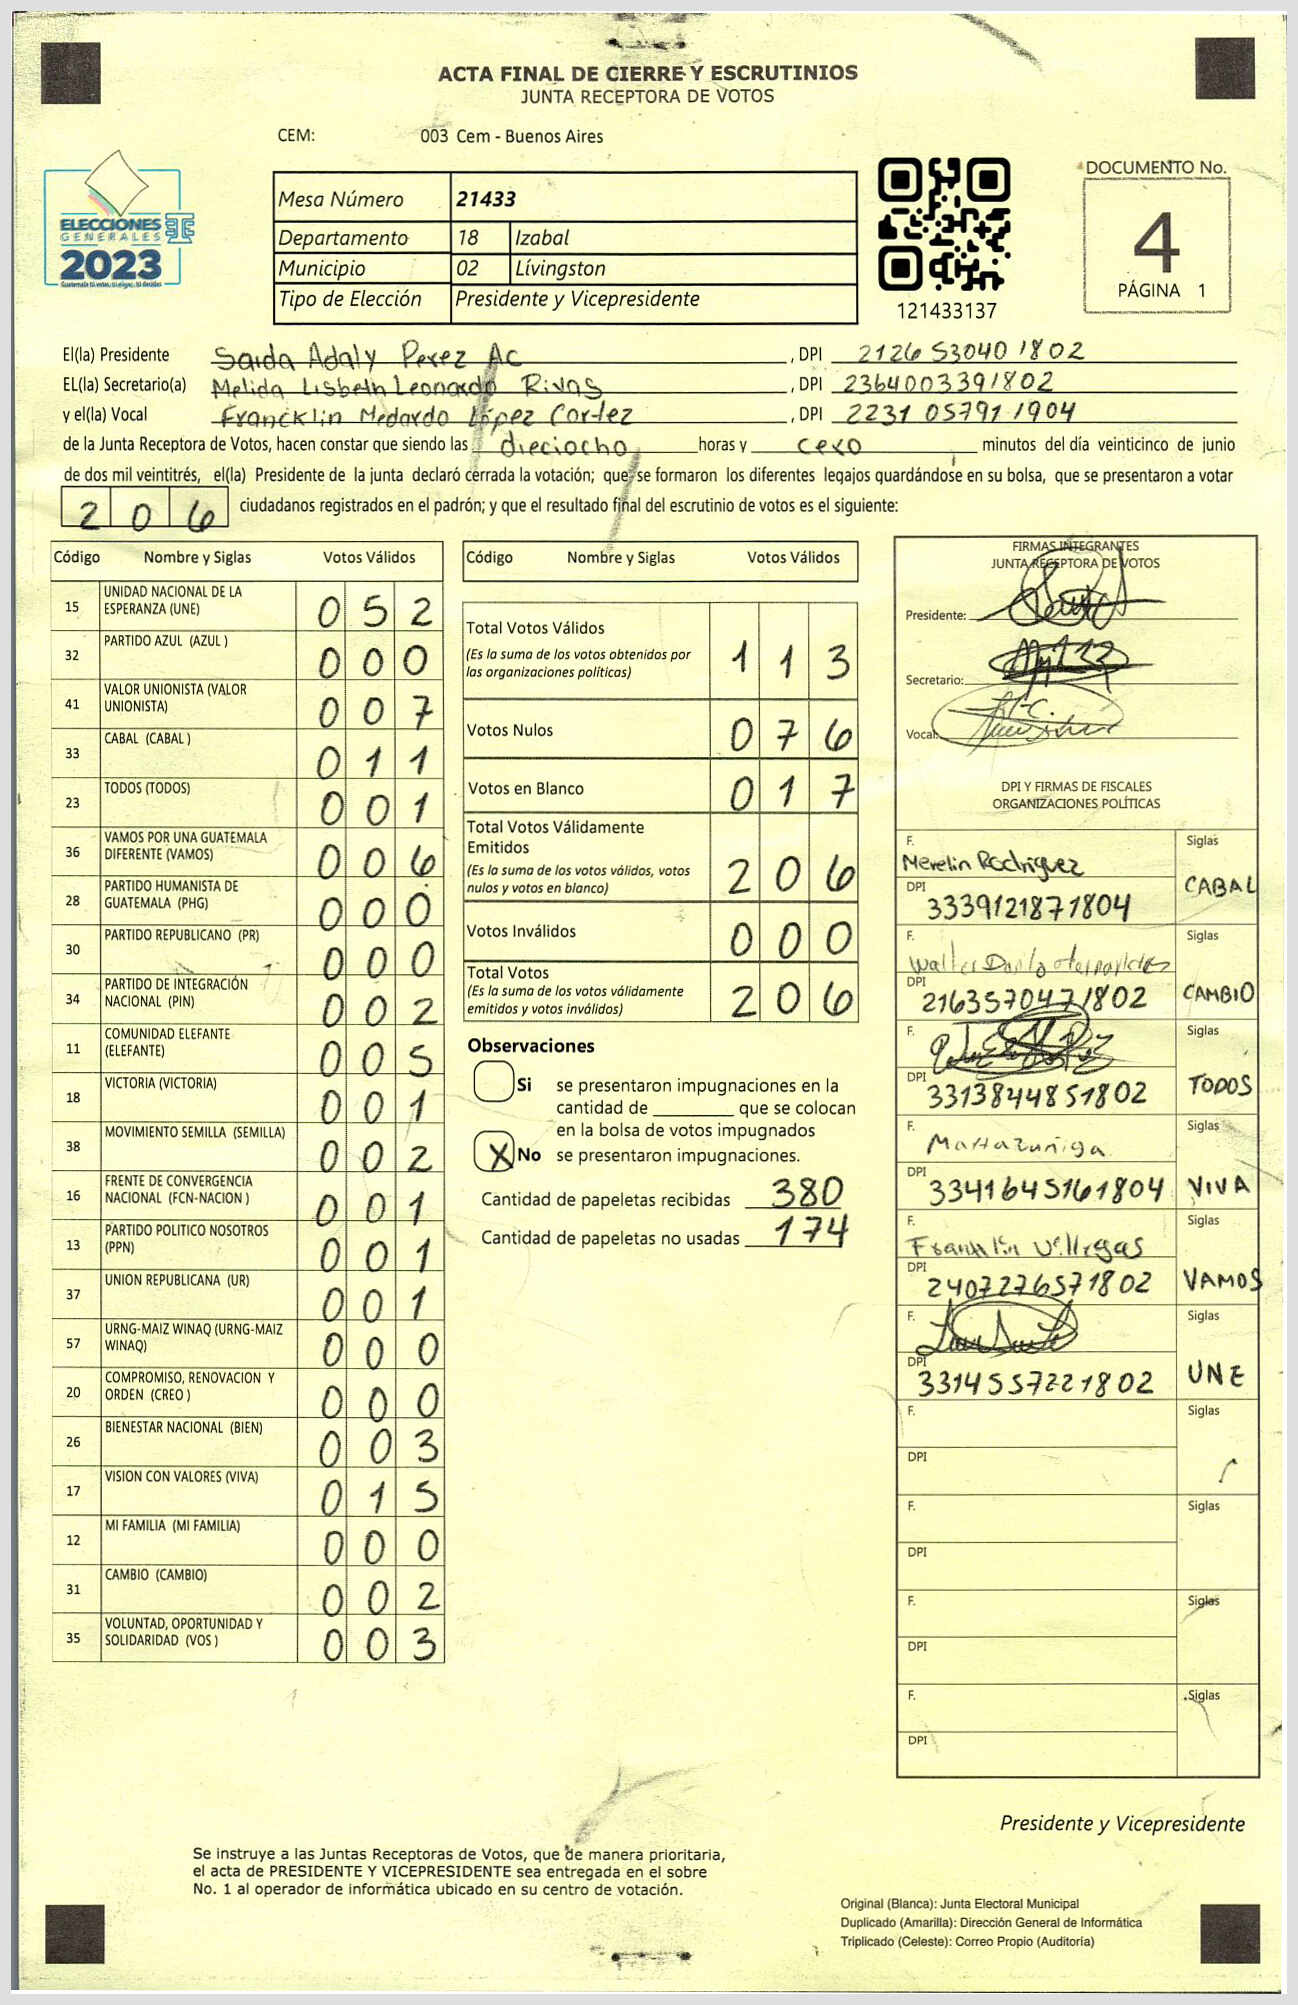 ACTA FINAL DE CIERRE Y ESCRUTINIOS
JUNTA RECEPTORA DE VOTOS
CEM: 003 Cem - Buenos Aires
DOCUMENTO No.
4
PÁGINA 1
ELECCIONES
GENERALES
2023
Guatemala tú votas, tú eliges, tú decides
Mesa Número 21433
Departamento 18 Izabal
Municipio 02 Lívingston
Tipo de Elección Presidente y Vicepresidente
121433137
El(la) Presidente Saida Adaly Perez Ac , DPI 2126 53040 1802
EL(la) Secretario(a) Melida Lisbeth Leonardo Rivas , DPI 2364003391802
y el(la) Vocal Francklin Medardo López Cortez , DPI 2231 05791 1904
de la Junta Receptora de Votos, hacen constar que siendo las dieciocho horas y cero minutos del día veinticinco de junio
de dos mil veintitrés, el(la) Presidente de la junta declaró cerrada la votación; que se formaron los diferentes legajos guardándose en su bolsa, que se presentaron a votar
206 ciudadanos registrados en el padrón; y que el resultado final del escrutinio de votos es el siguiente:
Código Nombre y Siglas Votos Válidos
15 UNIDAD NACIONAL DE LA ESPERANZA (UNE) 052
32 PARTIDO AZUL (AZUL ) 000
41 VALOR UNIONISTA (VALOR UNIONISTA) 007
33 CABAL (CABAL ) 011
23 TODOS (TODOS) 001
36 VAMOS POR UNA GUATEMALA DIFERENTE (VAMOS) 006
28 PARTIDO HUMANISTA DE GUATEMALA (PHG) 000
30 PARTIDO REPUBLICANO (PR) 000
34 PARTIDO DE INTEGRACIÓN NACIONAL (PIN) 002
11 COMUNIDAD ELEFANTE (ELEFANTE) 005
18 VICTORIA (VICTORIA) 001
38 MOVIMIENTO SEMILLA (SEMILLA) 002
16 FRENTE DE CONVERGENCIA NACIONAL (FCN-NACION ) 001
13 PARTIDO POLITICO NOSOTROS (PPN) 001
37 UNION REPUBLICANA (UR) 001
57 URNG-MAIZ WINAQ (URNG-MAIZ WINAQ) 000
20 COMPROMISO, RENOVACION Y ORDEN (CREO ) 000
26 BIENESTAR NACIONAL (BIEN) 003
17 VISION CON VALORES (VIVA) 015
12 MI FAMILIA (MI FAMILIA) 000
31 CAMBIO (CAMBIO) 002
35 VOLUNTAD, OPORTUNIDAD Y SOLIDARIDAD (VOS ) 003
Código Nombre y Siglas Votos Válidos
Total Votos Válidos 113
(Es la suma de los votos obtenidos por
las organizaciones políticas)
Votos Nulos 076
Votos en Blanco 017
Total Votos Válidamente
Emitidos 206
(Es la suma de los votos válidos, votos
nulos y votos en blanco)
Votos Inválidos 000
Total Votos 206
(Es la suma de los votos válidamente
emitidos y votos inválidos)
Observaciones
Si se presentaron impugnaciones en la
cantidad de ________ que se colocan
en la bolsa de votos impugnados
X No se presentaron impugnaciones.
Cantidad de papeletas recibidas 380
Cantidad de papeletas no usadas 174
FIRMAS INTEGRANTES
JUNTA RECEPTORA DE VOTOS
Presidente:
Secretario:
Vocal:
DPI Y FIRMAS DE FISCALES
ORGANIZACIONES POLÍTICAS
F. Merelin Rodriguez Siglas
DPI 3339121871804 CABAL
F. Walter Danilo Siglas
DPI 2163570471802 CAMBIO
F. Siglas
DPI 3313844851802 TODOS
F. Marta Zuñiga Siglas
DPI 3341645161804 VIVA
F. Franklin Villegas Siglas
DPI 2407276571802 VAMOS
F. Siglas
DPI 3314557221802 UNE
F. Siglas
DPI
F. Siglas
DPI
F. Siglas
DPI
F. Siglas
DPI
Presidente y Vicepresidente
Se instruye a las Juntas Receptoras de Votos, que de manera prioritaria,
el acta de PRESIDENTE Y VICEPRESIDENTE sea entregada en el sobre
No. 1 al operador de informática ubicado en su centro de votación.
Original (Blanca): Junta Electoral Municipal
Duplicado (Amarilla): Dirección General de Informática
Triplicado (Celeste): Correo Propio (Auditoría)